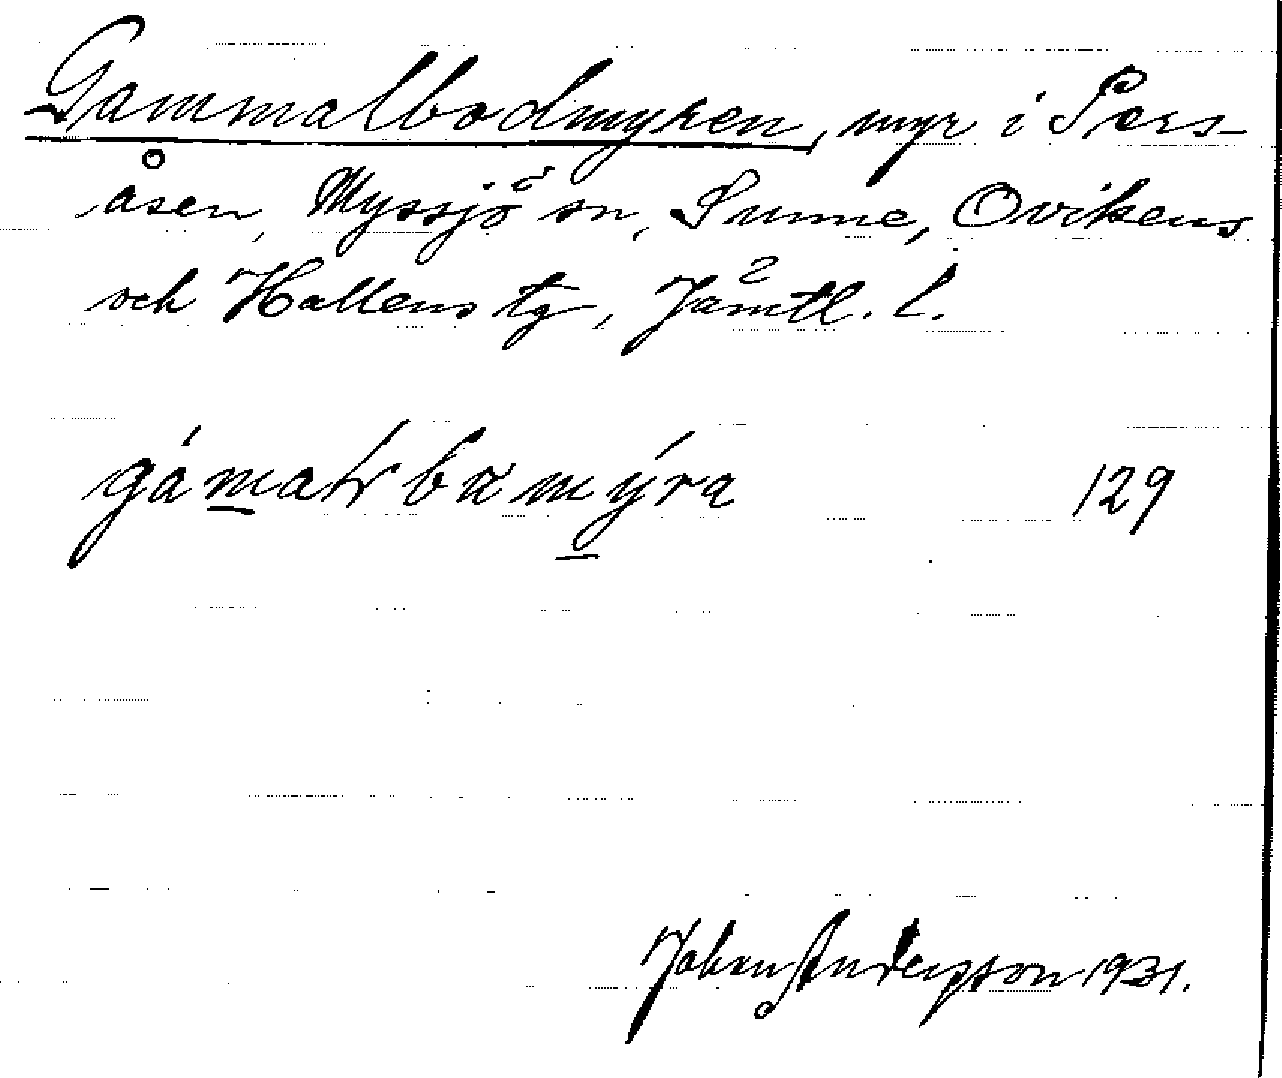 Gammalbodmyren, myr i Pers-
åsen, Myssjö sn, Sunne, Ovikens
och Hallens tg, Jämtl. l.
129
Johan Andersson 1931.